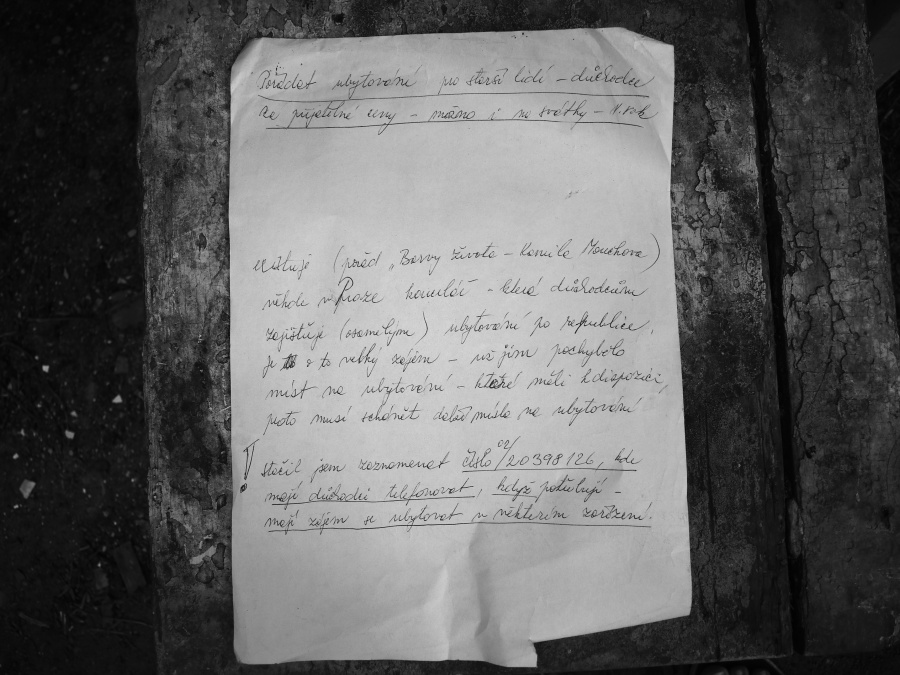 Pořádat ubytování pro starší lidi – důchodce
za přijatelné ceny – možno i na svátky – N. rok
existuje (pořad „Barvy života – Kamila Moučkova)
někde v Praze kancelář – která důchodcům
zajišťuje (osamělým) ubytování po republice,
je o to velký zájem – už jim pochybělo
míst na ubytování – které měli k dispozici,
proto musí schánět další místa na ubytování
! Stačil jsem zaznamenat číslo 02/20398126, kde
mají důchodci telefonovat, když potřebují –
mají zájem se ubytovat v některém zařízení.